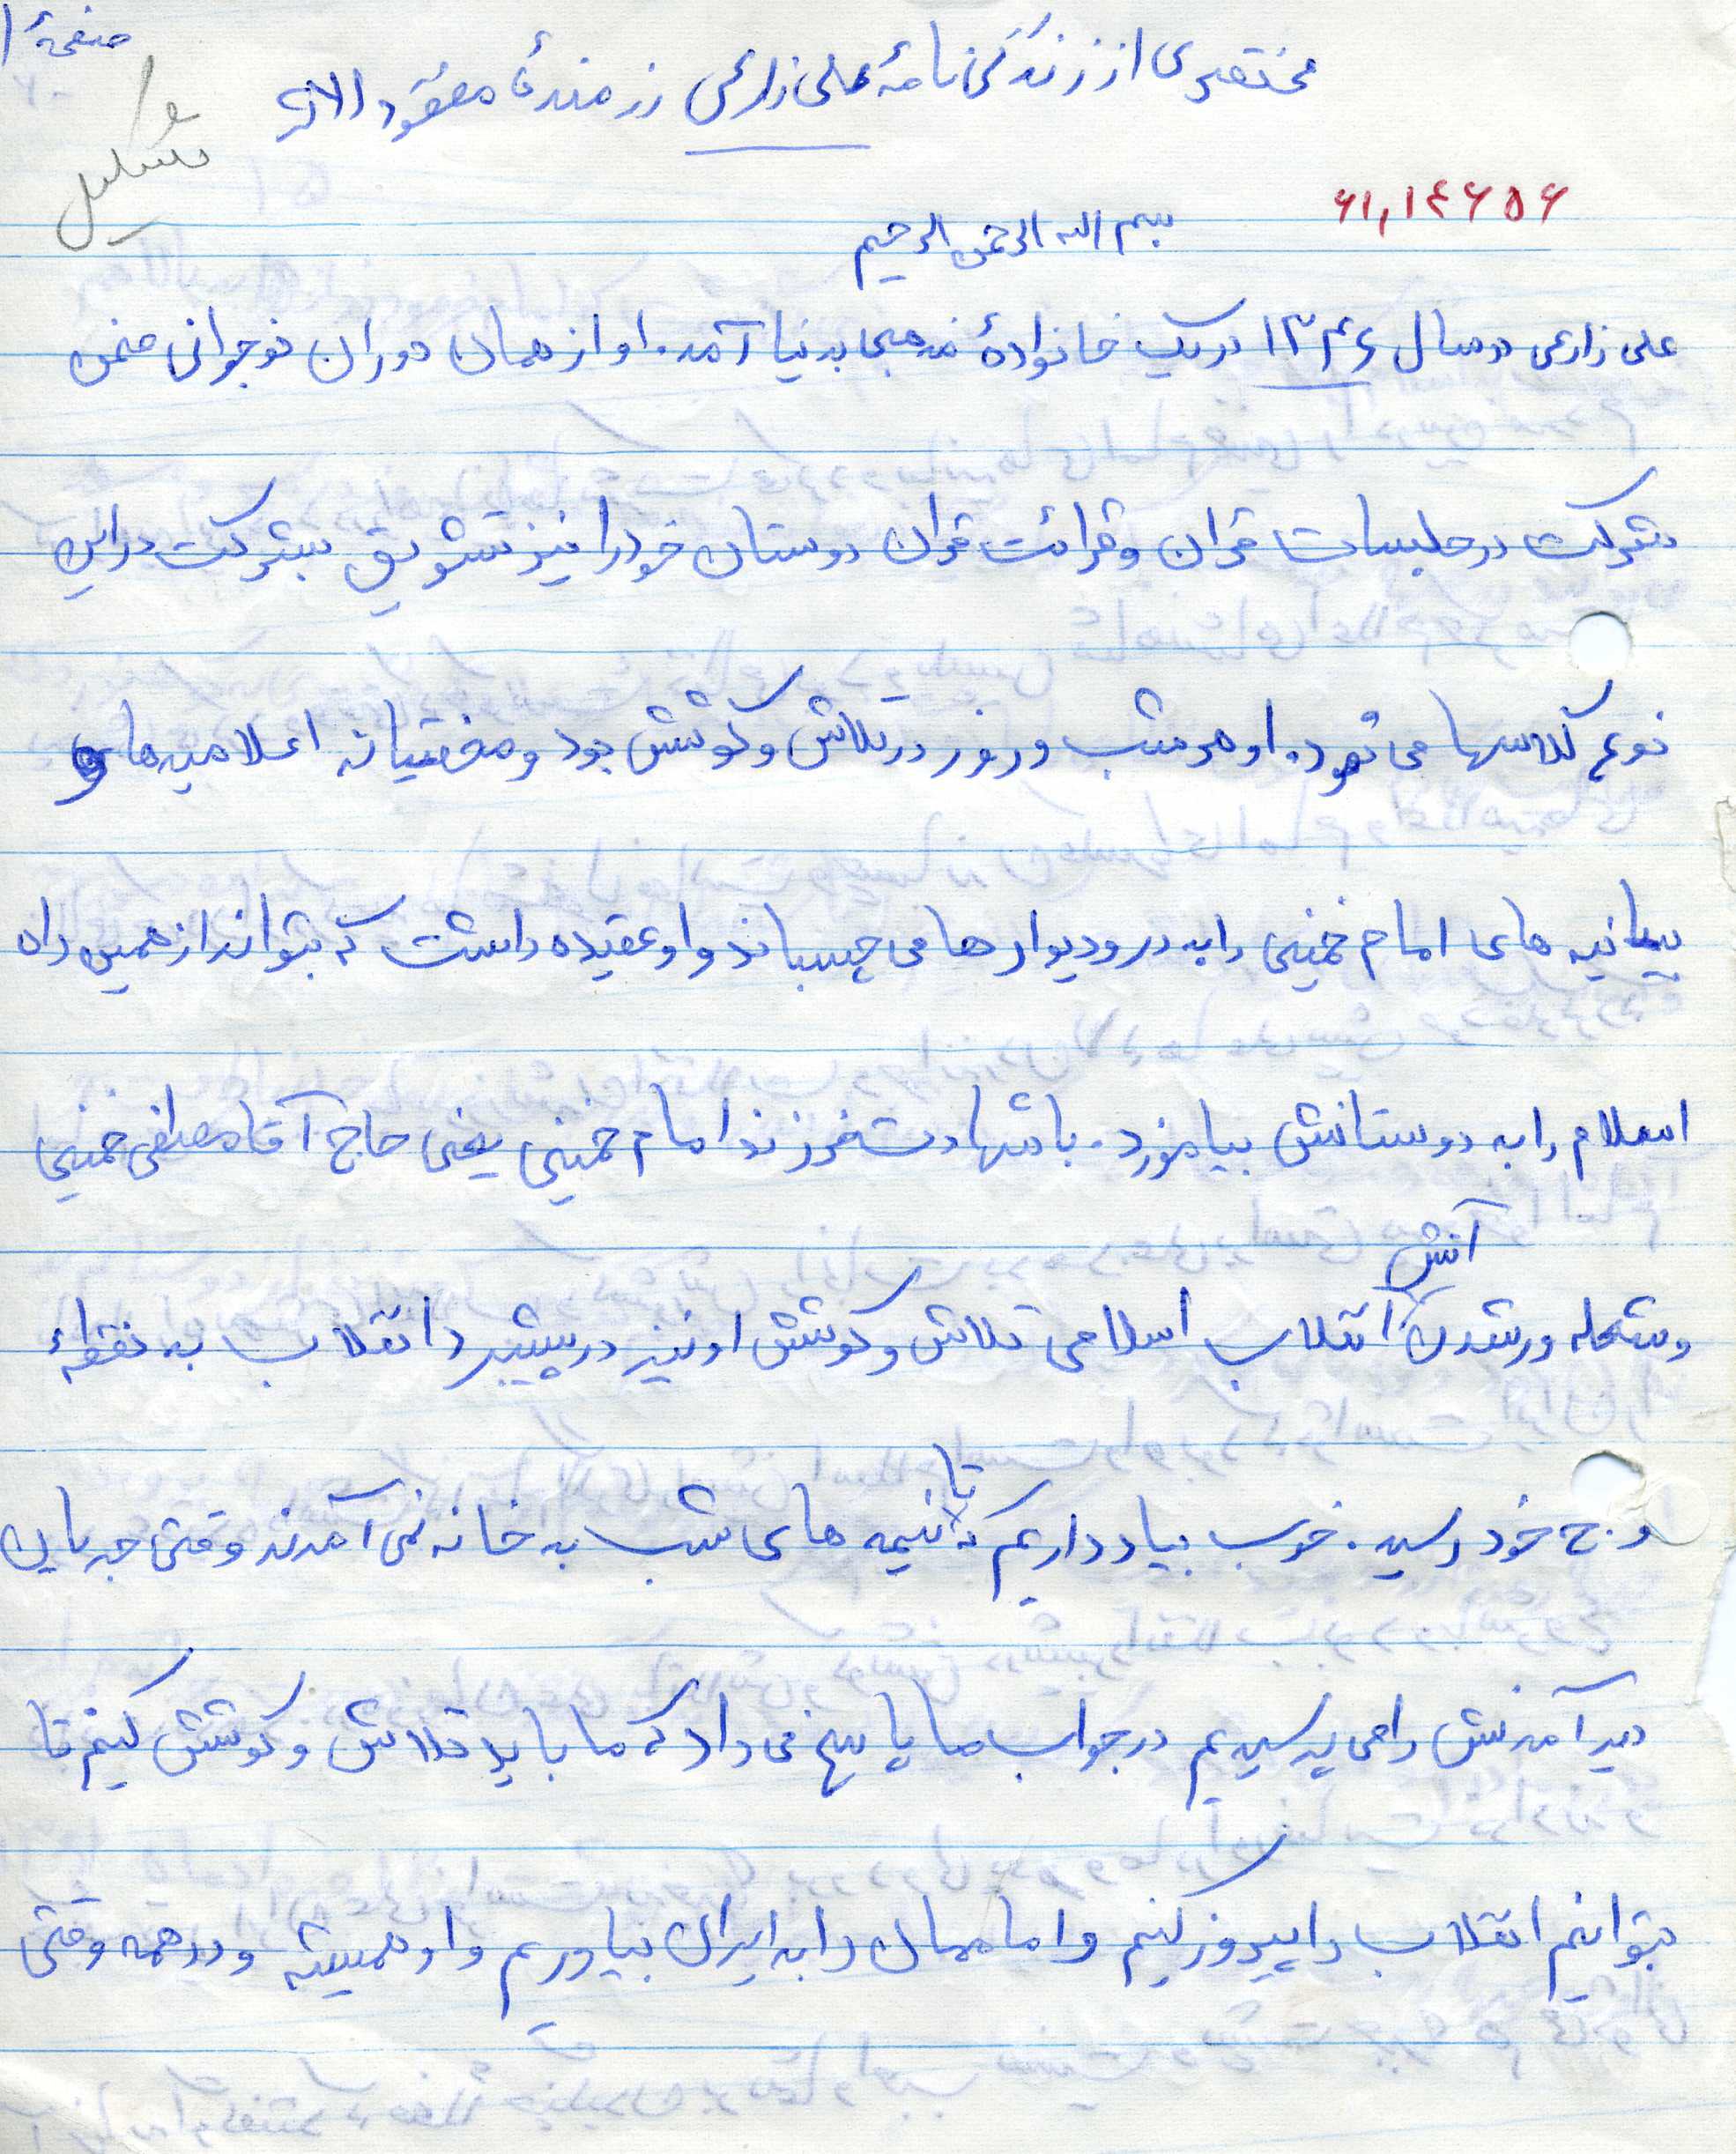 صفحهٔ ۱
مختصری از زندگی‌نامهٔ علی زارعی رزمندهٔ مفقود الاثر
تشکیل
۶۱,۱۴۶۵۶
بسم الله الرحمن الرحیم
علی زارعی در سال ۱۳۴۶ در یک خانوادهٔ مذهبی بدنیا آمد. او از همان دوران نوجوانی ضمن
شرکت در جلسات قرآن و قرائت قرآن دوستان خود را نیز تشویق بشرکت در این
نوع کلاسها می نمود. او هر شب و روز در تلاش و کوشش بود و مخفیانه اعلامیه های و
بیانیه های امام خمینی را به در و دیوارها می چسباند و او عقیده داشت که بتواند از همین راه
اسلام را به دوستانش بیاموزد. با شهادت فرزند امام خمینی یعنی حاج آقا مصطفی خمینی
آتش
و شعله ور شدن انقلاب اسلامی تلاش و کوشش او نیز در پیشبرد انقلاب به نقطهٔ
تا
اوج خود رسید. خوب بیاد داریم که نیمه های شب به خانه نمی آمدند وقتی جریان
دیر آمدنش را می پرسیدیم در جواب ما پاسخ می داد که ما باید تلاش و کوشش کنیم تا
بتوانیم انقلاب را پیروز کنیم و امامان را به ایران بیاوریم و او همیشه و در همه وقتی